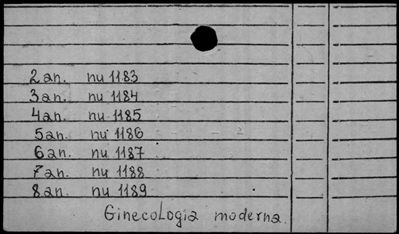 2 an. nu 1183
3 an. nu 1184
4 an. nu 1185
5 an. nu 1186
6 an. nu 1187
7 an. nu 1188
8 an. nu 1189
Ginecologia moderna.